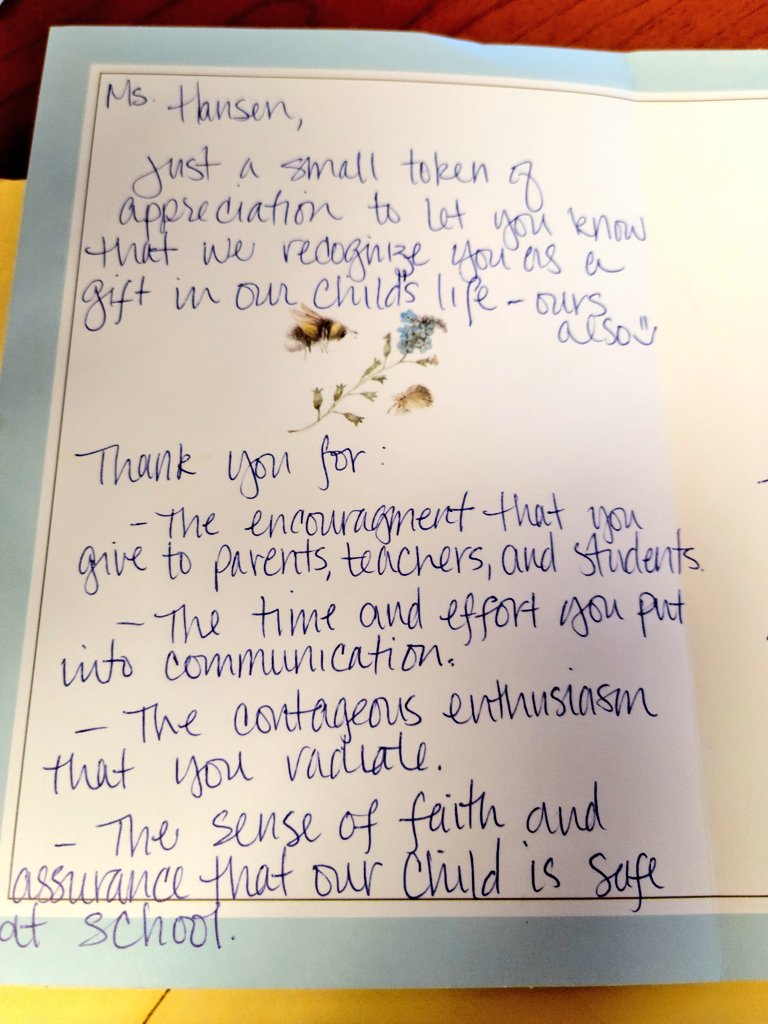 Ms. Hansen,
Just a small token of
appreciation to let you know
that we recognize you as a
gift in our child's life - ours
also
Thank you for:
- The encouragment that you
give to parents, teachers, and students.
- The time and effort you put
into communication.
- The contageous enthusiasm
that you radiate.
- The sense of faith and
assurance that our child is safe
at school.